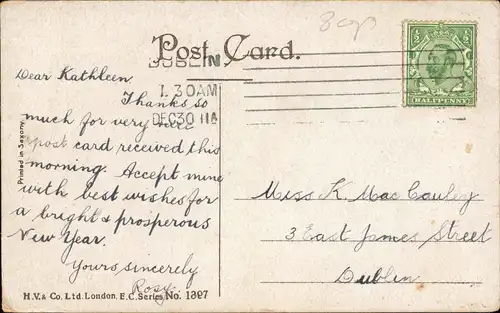 8cp
Post Card.
DUBLIN
1.30AM
DEC 30 11
½ ½
HALFPENNY
Dear Kathleen,
Thanks so
much for very nice
post card received this
morning. Accept mine
with best wishes for
a bright & prosperous
New Year.
Yours sincerely
Rosy.
Miss K. MacCauley
3 East James Street
Dublin
Printed in Saxony.
H.V. & Co. Ltd. London. E.C. Series No. 1397